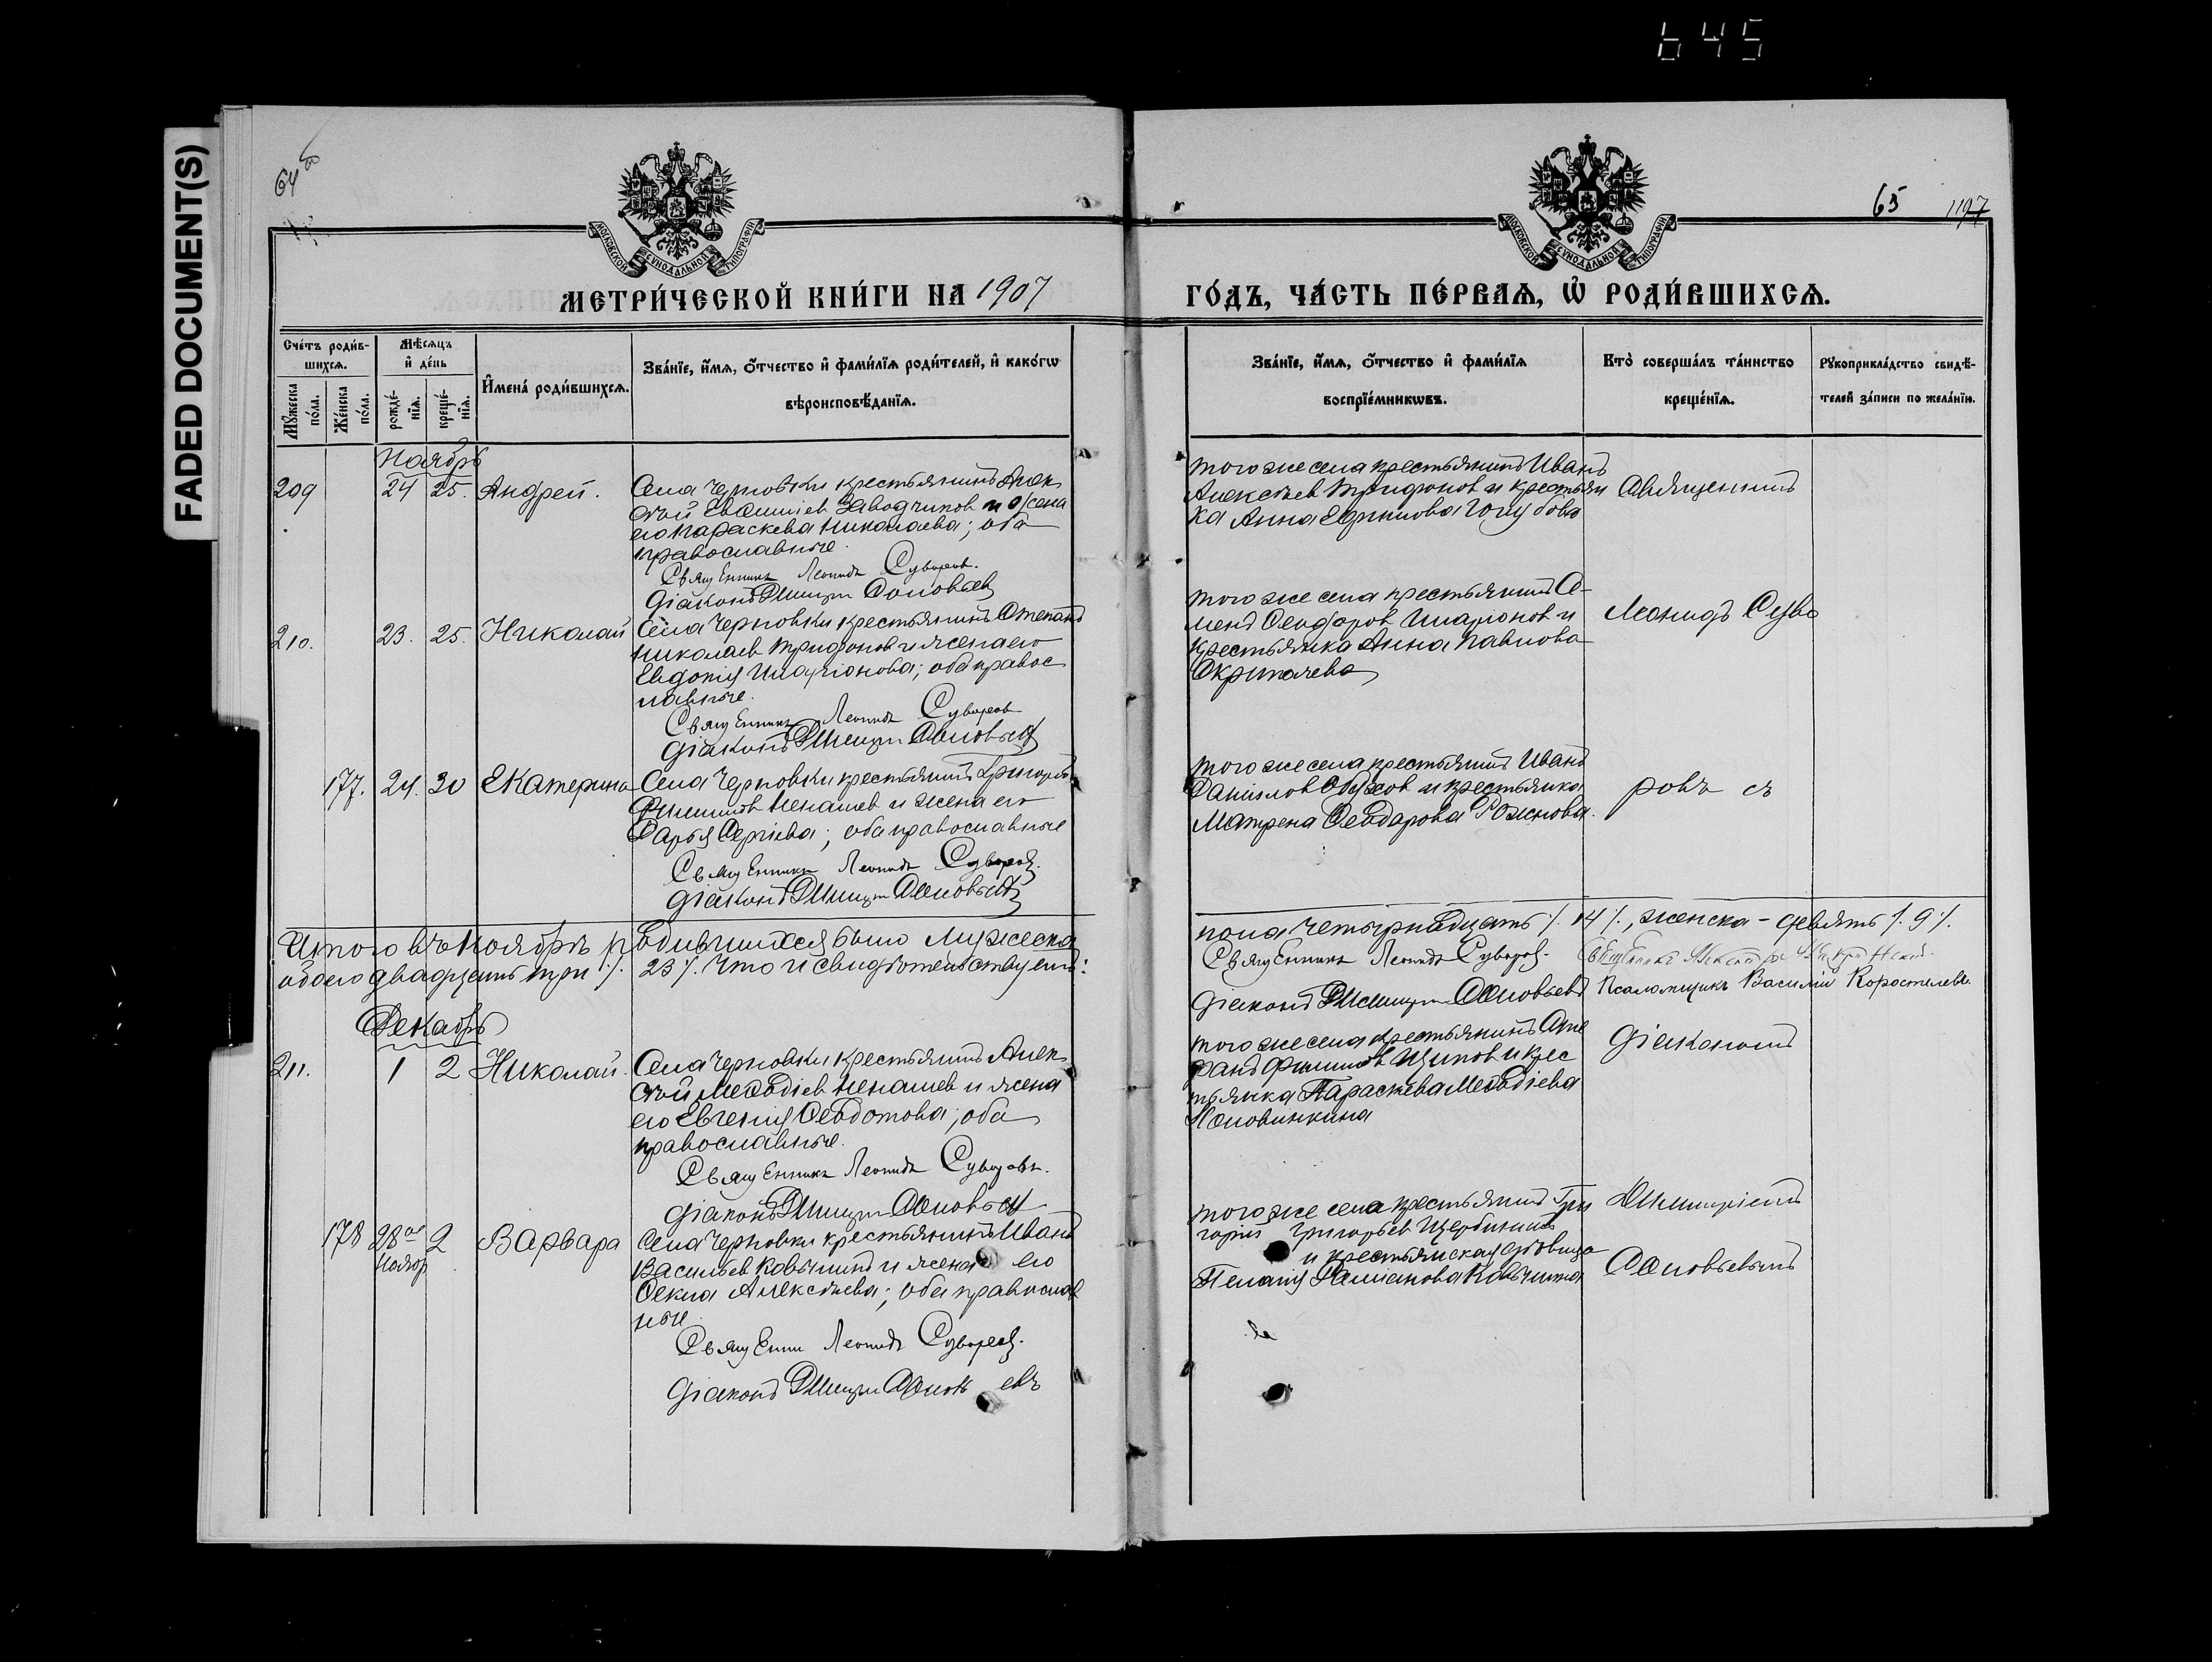 645
FADED DOCUMENT(S)
64 об
65 1197
МОСКОВСКОЙ СУНОДАЛЬНОЙ ТИПОГРАФІИ
МОСКОВСКОЙ СУНОДАЛЬНОЙ ТИПОГРАФІИ
МЕТРИ́ЧЕСКОЙ КНИ́ГИ НА 1907
ГО́ДЪ, ЧА́СТЬ ПЕ́РВАѦ, Ѡ҆ РОДИ́ВШИХСѦ.
Сче́тъ роди́в-
шихсѧ.
Мꙋ́жеска по́ла.
Же́нска по́ла.
Мѣ́сѧцъ
и҆ де́нь
рожде́-
нїѧ.
креще́-
нїѧ.
И҆мена̀ роди́вшихсѧ.
Зва́нїе, и҆́мѧ, ѻ҆́тчество и҆ фами́лїѧ роди́телей, и҆ како́гѡ
вѣроисповѣ́данїѧ.
Зва́нїе, и҆́мѧ, ѻ҆́тчество и҆ фами́лїѧ
воспрїе́мникѡвъ.
Кто̀ соверша́лъ та́инство
креще́нїѧ.
Рꙋкоприкла́дство свидѣ́-
телей за́писи по жела́нїю.
Ноябрь
209 24 25. Андрей.
Села Черновки крестьянинъ Алек
сѣй Заводчиков и жена
его Параскева Николаева; оба
православные.
Священникъ Леонидъ Суворов.
Діаконъ Димитр Соловьев
того же села крестьянинъ Иванъ
Алексѣев Трифонов и крестьян
ка Анна Ефимова Голубова
Священникъ
210. 23. 25. Николай
Села Черновки крестьянинъ Степанъ
Николаев Трифонов и жена его
Евдокія Иларіонова; оба правос
лавные.
Священникъ Леонидъ Суворов
Діаконъ Димитр Соловьев
того же села крестьянинъ Се-
менъ Ѳеодоров Иларіонов и
крестьянка Анна Павлова
Леонидъ Суво
177. 24. 30 Екатерина
Села Черновки крестьянинъ Григорій
Филиппов Ненашев и жена его
Дарья Сергіева; оба православные
Священникъ Леонидъ Суворов.
Діаконъ Димитр Соловьев
того же села крестьянинъ Иванъ
Даніилов и крестьянка
Матрена Ѳеодорова
ровъ съ
Итого въ Ноябрѣ родившихся было мужеска
обоего двадцать три ∕. 23 ∕. Что и свидѣтельствуемъ:
пола четырнадцать ∕. 14 ∕., женска – девять ∕. 9 ∕.
Священникъ Леонидъ Суворов.
Діаконъ Димитр Соловьевъ Псаломщикъ Василій Коростелевъ
Декабрь
211. 1 2 Николай.
Села Черновки крестьянинъ Алек
сѣй Меѳодіев Ненашев и жена
его Евгенія Ѳеодотова; оба
православные.
Священникъ Леонидъ Суворовъ.
Діаконъ Димитр Соловьев
того же села крестьянинъ Сте
фанъ Филиппов и крес
тьянка Параскева Меѳодіева
Половинкина
Діакономъ
178 28го 2 Варвара
Ноябр
Села Черновки крестьянинъ Иванъ
Васильев Ковылинъ и жена его
Ѳекла Алексѣева; оба православ
ные
Священни Леонидъ Суворов.
Діаконъ Димитр Солов евъ
того же села крестьянинъ Гри
горій Григорьев Щербининъ
и крестьянская дѣвица
Пелагія Ковылина
Димитріемъ
Соловьевымъ